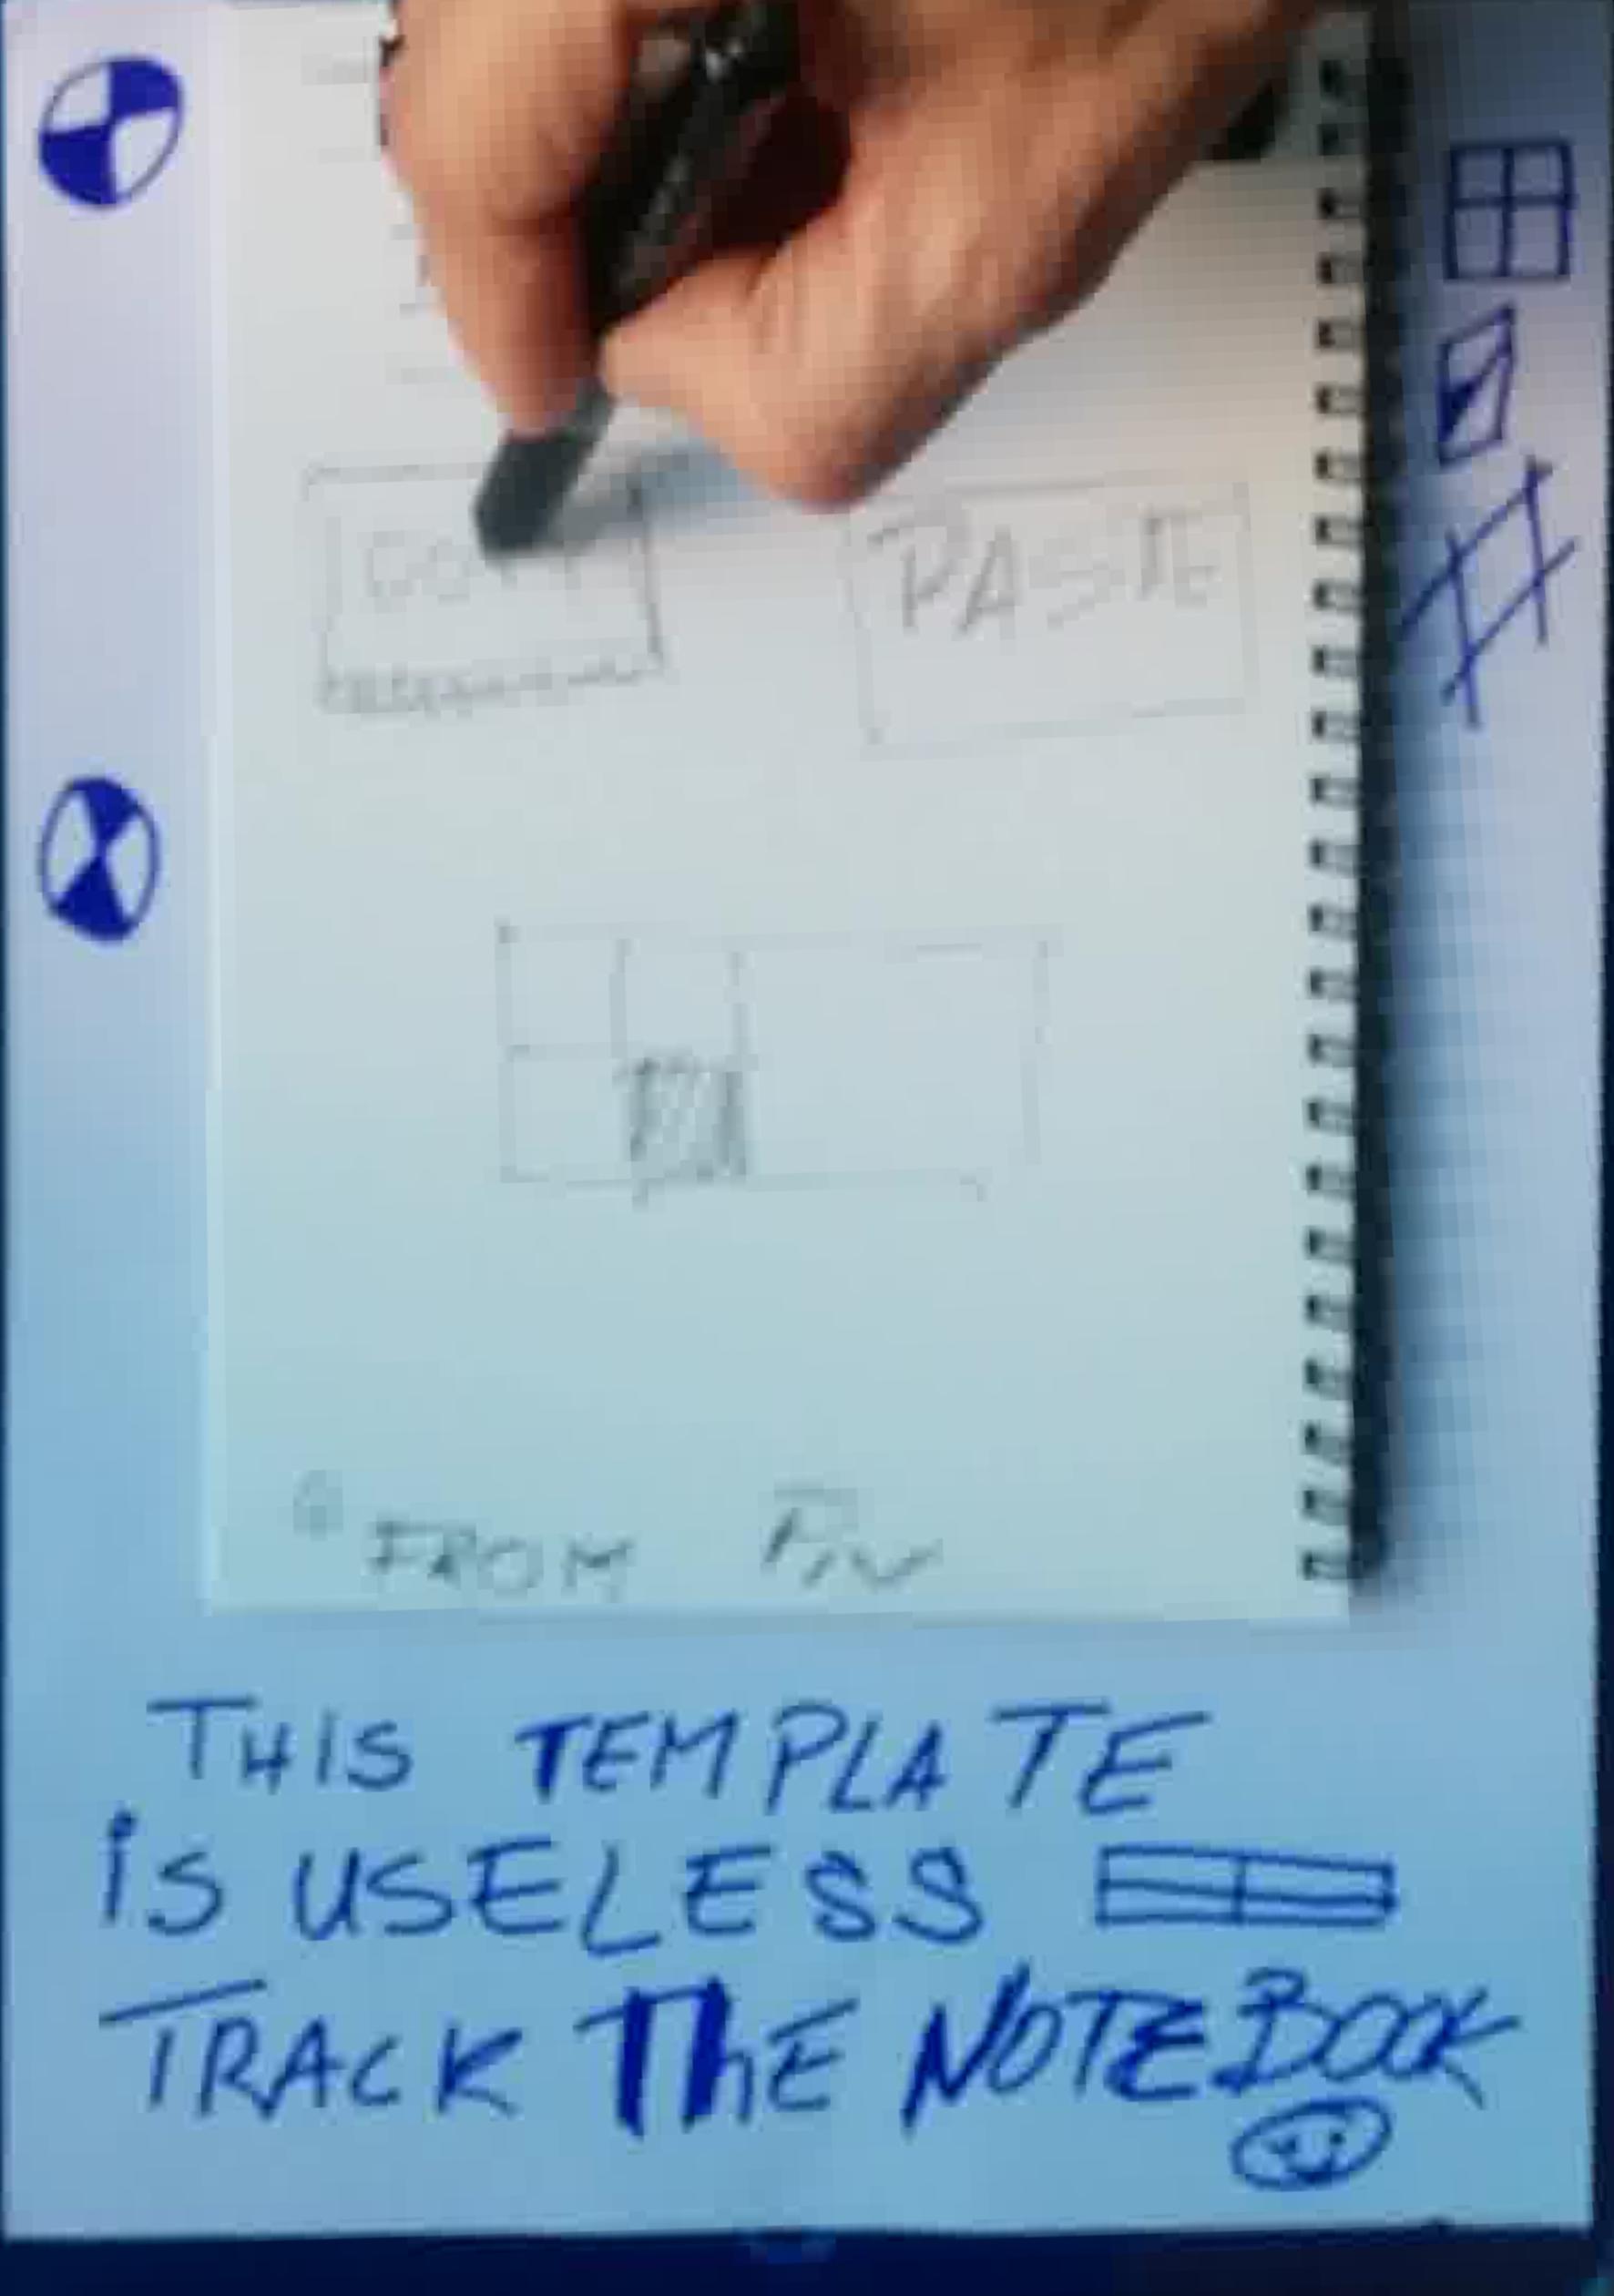 COPY PASTE
FROM
THIS TEMPLATE
iS USELESS
TRACK ThE NOTEBOOK